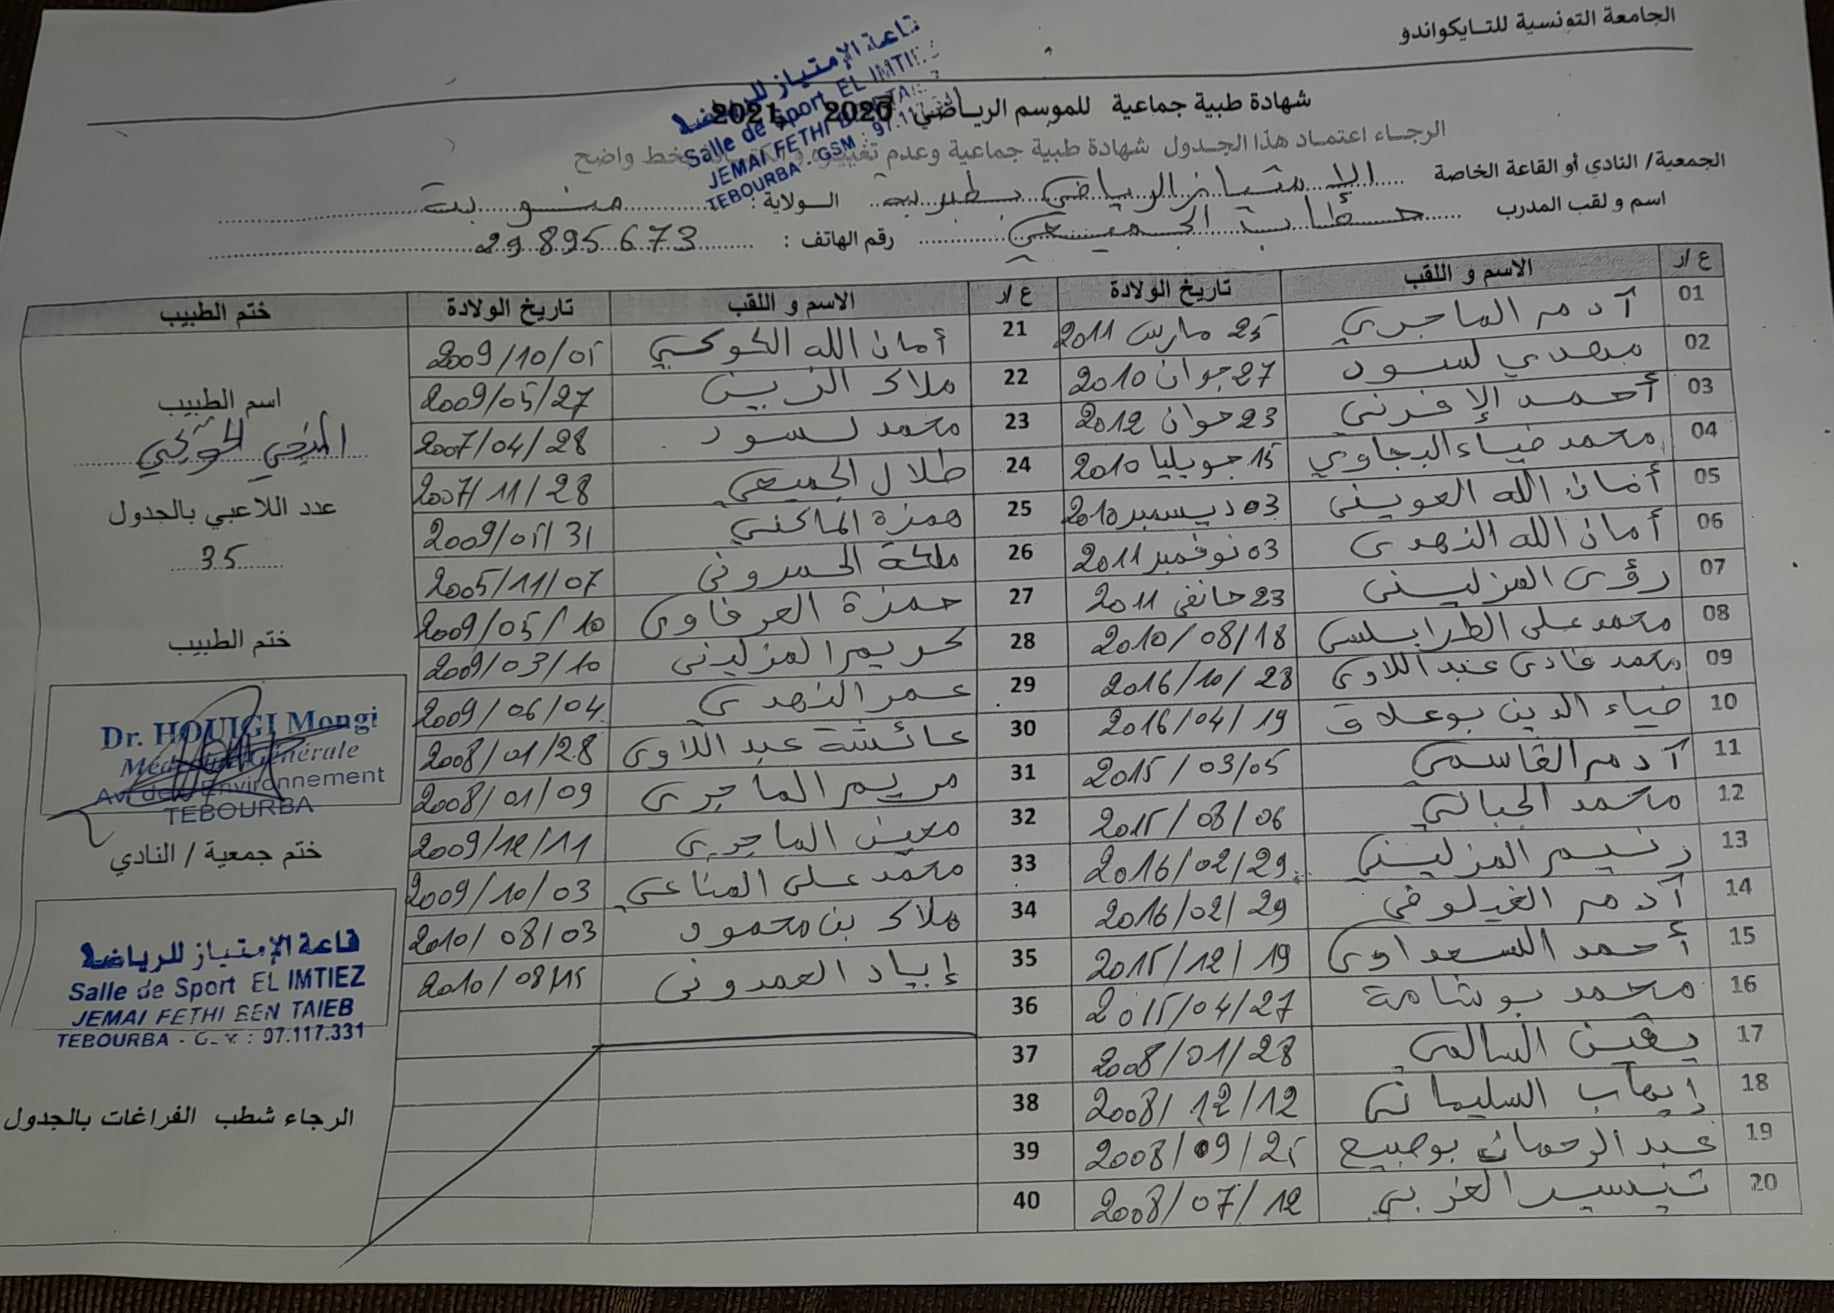 الجامعة التونسية للتايكواندو
شهادة طبية جماعية للموسم الرياضي 2020 2021
الرجاء اعتماد هذا الجدول شهادة طبية جماعية وعدم خط واضح
قاعة الإمتياز للرياضة
Salle de Sport EL IMTIEZ
JEMAI FETHI
TEBOURBA - GSM : 97.11
الجمعية/ النادي أو القاعة الخاصة الامتياز الرياضي بطبربة الولاية : منوبة
اسم و لقب المدرب الجميعي رقم الهاتف : 29895673
ع/ر الاسم و اللقب تاريخ الولادة ع/ر الاسم و اللقب تاريخ الولادة ختم الطبيب
01 آدم الماجري 25 مارس 2011 21 أمان الله الكوكي 2009/10/01
02 مهدي لسود 27 جوان 2010 22 ملاك الزين 2009/05/27
03 أحمد الإفرني 23 جوان 2012 23 محمد لسود 2007/04/28
04 محمد ضياء البجاوي 15 جويليا 2010 24 طلال الجميعي 2007/11/28
05 أمان الله العويني 03 ديسمبر 2010 25 همزة الماكني 2009/01/31
06 أمان الله النهدي 03 نوفمبر 2011 26 ملكة الحمروني 2005/11/07
07 رؤى المزليني 23 جانفي 2011 27 حمزة العرفاوي 2009/05/10
08 محمد علي الطرابلسي 2010/08/18 28 كريم المزليني 2009/03/10
09 محمد عبد اللاوي 2016/10/28 29 عمر النهدي 2009/06/04
10 ضياء الدين بوعلاق 2016/04/19 30 عائشة عبد اللاوي 2008/01/28
11 آدم القاسمي 2015/03/05 31 مريم الماجري 2008/01/09
12 محمد الجبالي 2015/08/06 32 معين الماجري 2009/12/11
13 رنيم المزليني 2016/02/29 33 محمد علي المناعي 2009/10/03
14 آدم الغيلوفي 2016/02/29 34 ملاك بن محمود 2010/08/03
15 أحمد السعداوي 2015/12/19 35 إياد العمدوني 2010/08/15
16 محمد بوشامة 2015/04/27 36
17 يقين السالمي 2008/01/28 37
18 إيهاب السليماني 2008/12/12 38
19 عبد الرحمان بوصبيع 2008/09/21 39
20 تيسير الغربي 2008/07/12 40
اسم الطبيب
المنجي الحويجي
عدد اللاعبي بالجدول
35
ختم الطبيب
Dr. HOUIGI Mongi
Médecine Générale
Av. de l'Environnement
TEBOURBA
ختم جمعية / النادي
قاعة الإمتياز للرياضة
Salle de Sport EL IMTIEZ
JEMAI FETHI BEN TAIEB
TEBOURBA - G : 97.117.331
الرجاء شطب الفراغات بالجدول